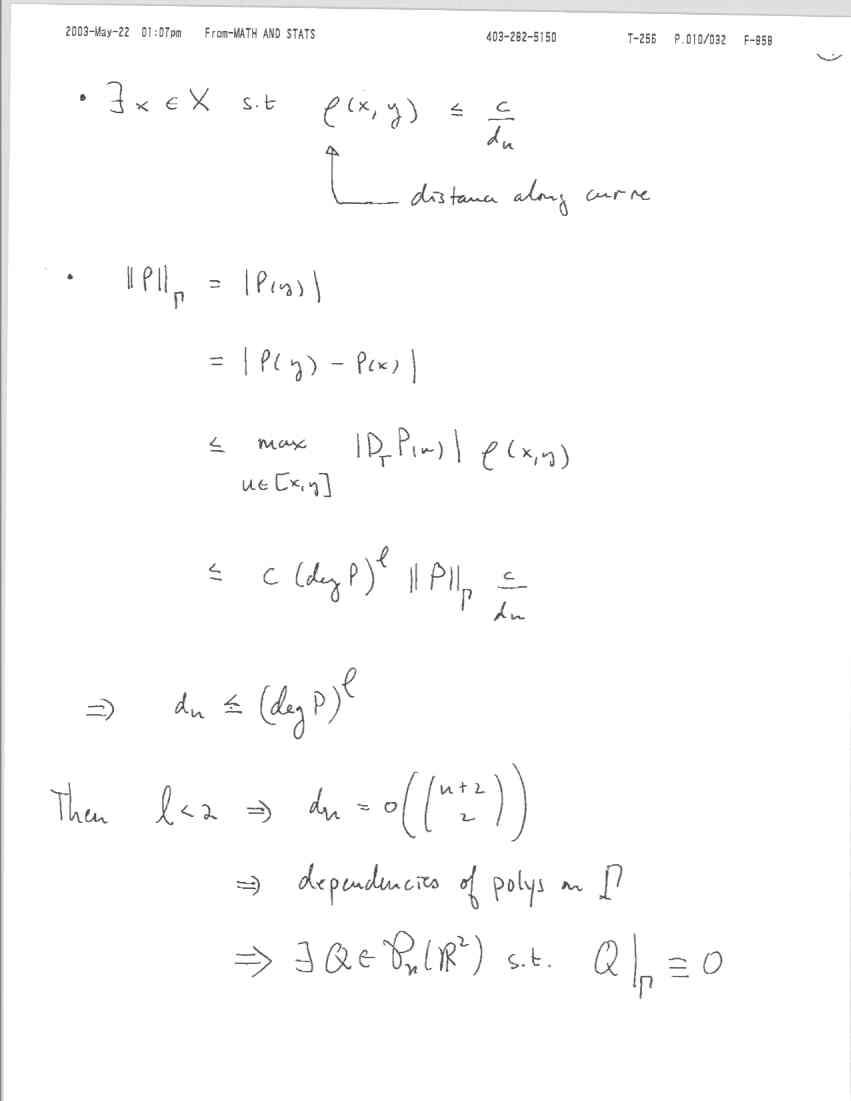 2003-May-22 01:07pm From-MATH AND STATS 403-282-5150 T-256 P.010/032 F-858
• ∃ x ∈ X s.t ρ(x, y) ≤ c/dₙ
distance along curve
• ‖P‖_Γ = |P(y)|
= |P(y) − P(x)|
≤ max |D_T P(u)| ρ(x,y)
u∈[x,y]
≤ C (deg P)^ℓ ‖P‖_Γ c/dₙ
⇒ dₙ ≤ (deg P)^ℓ
Then ℓ < 2 ⇒ dₙ = o((n+2 2))
⇒ dependencies of polys on Γ
⇒ ∃ Q ∈ 𝒫ₙ(ℝ²) s.t. Q|_Γ ≡ 0